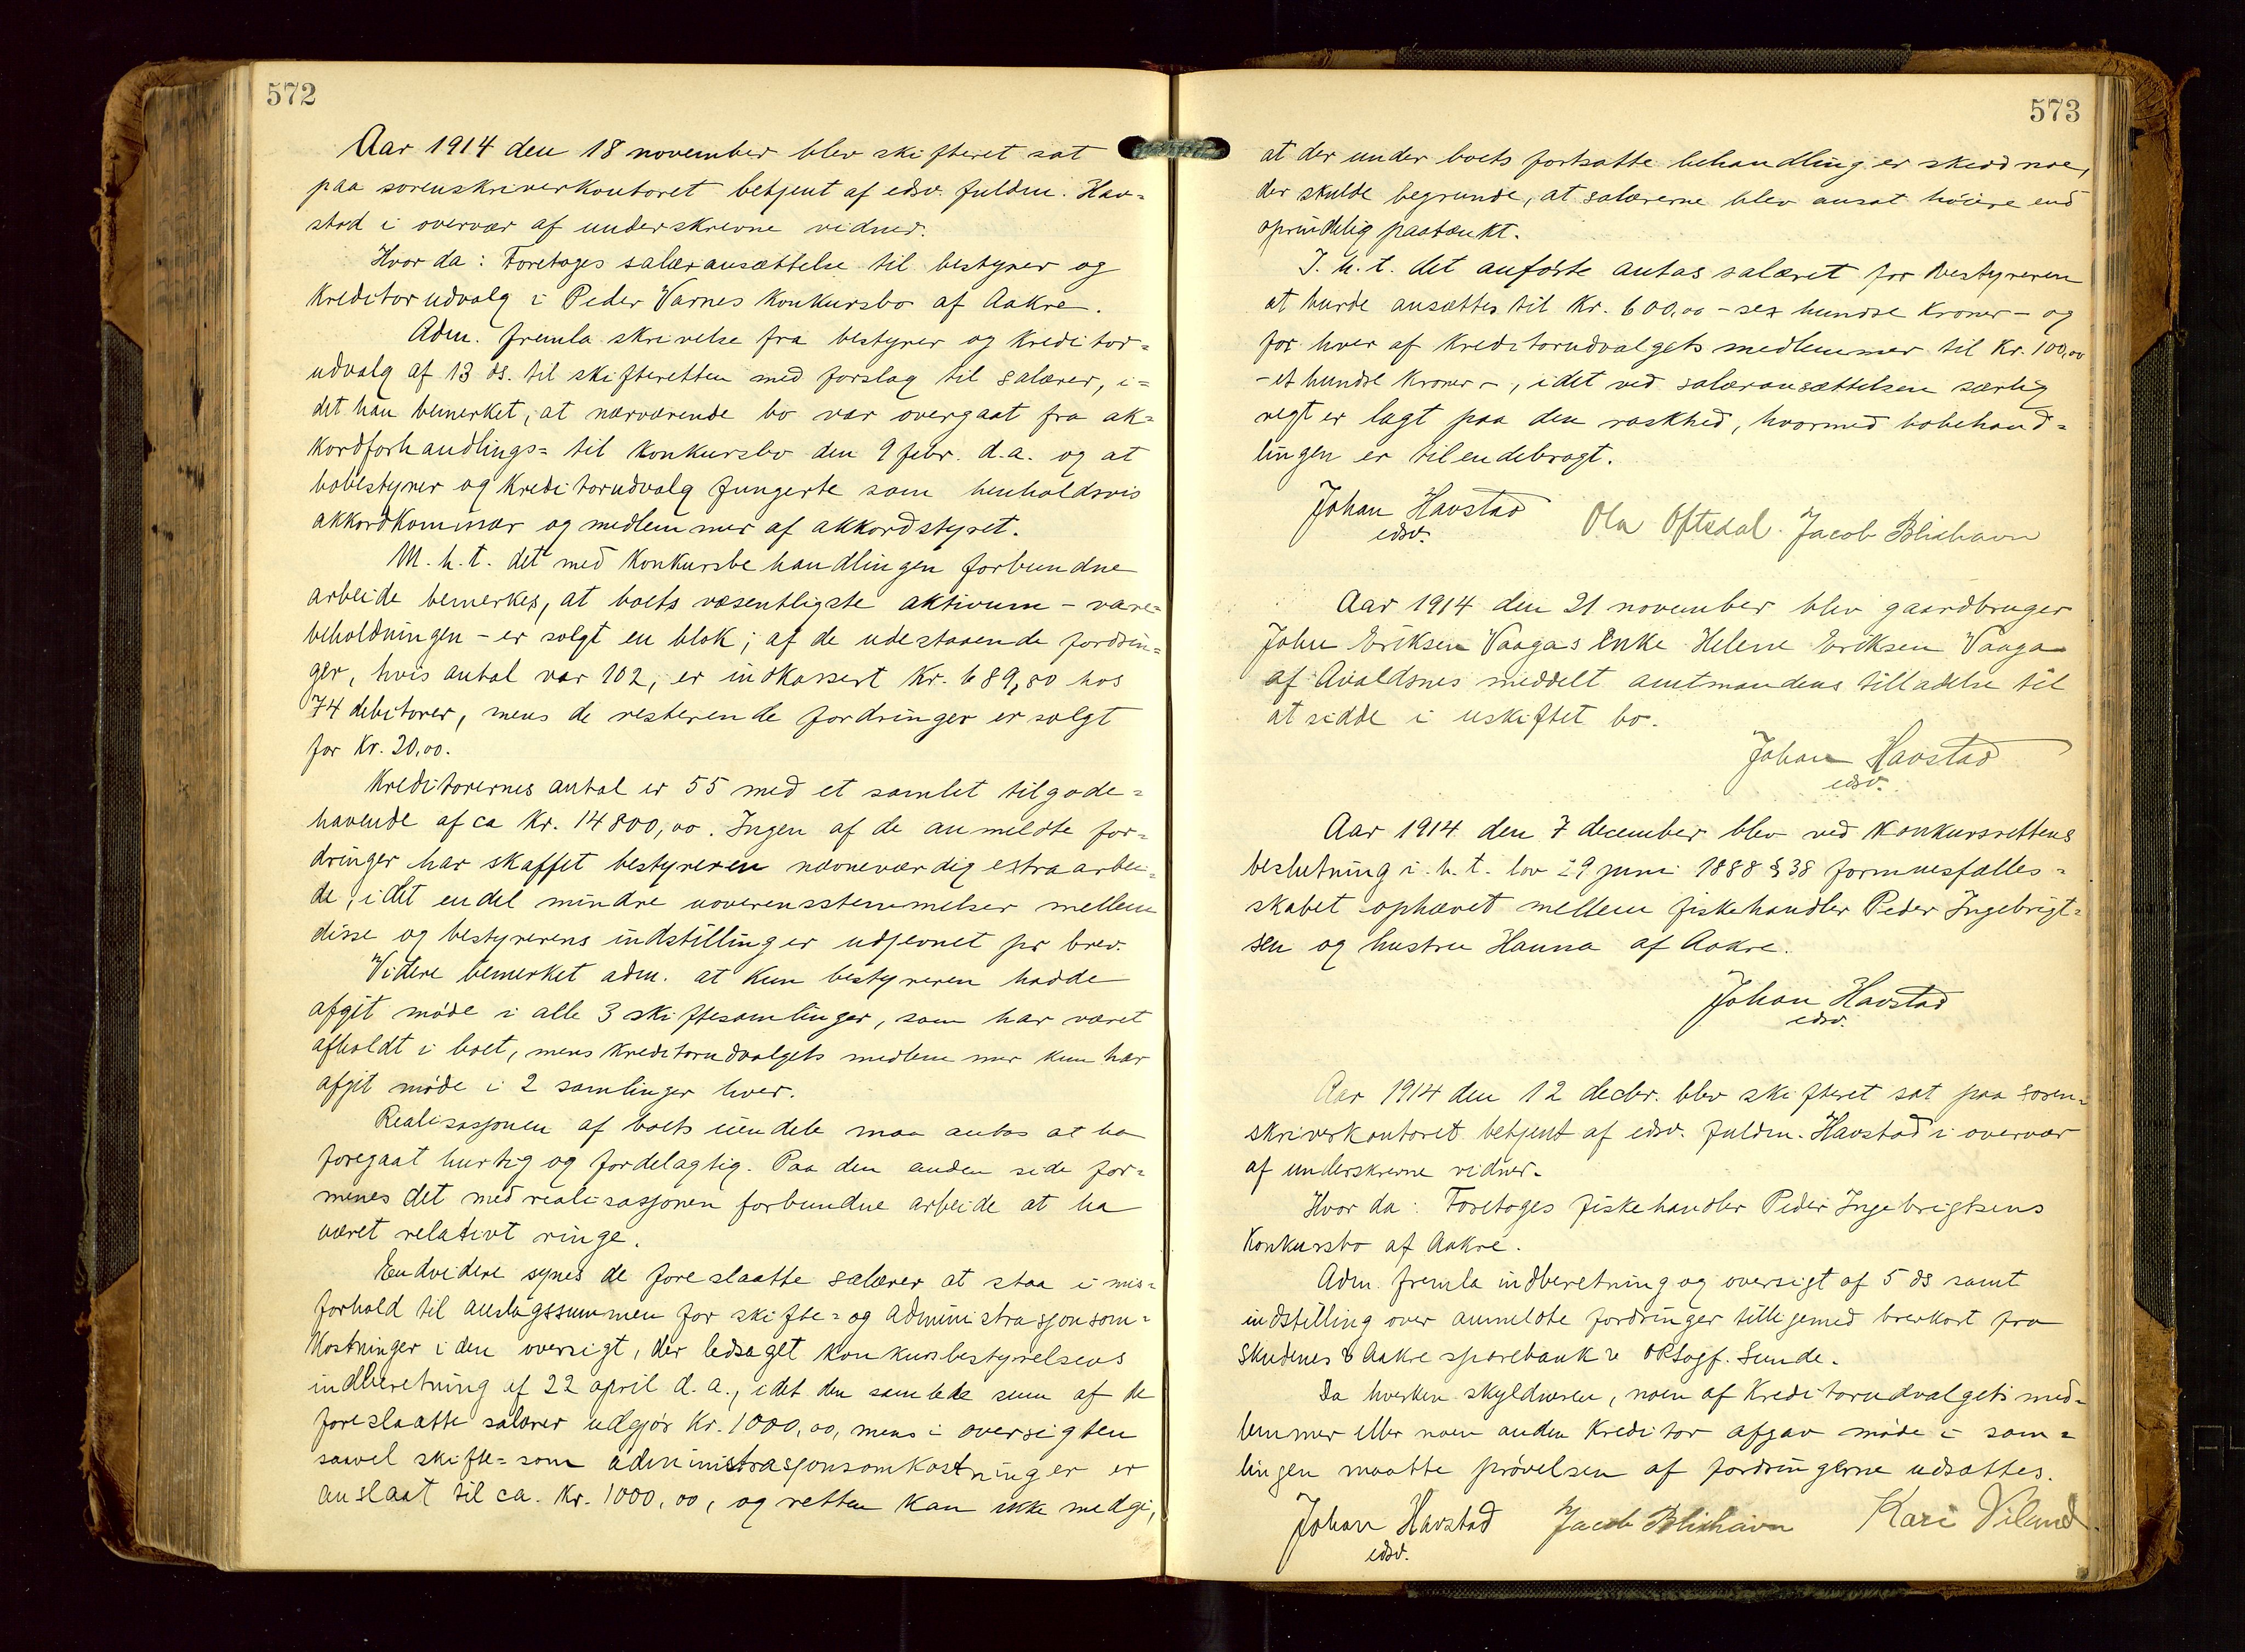 572
Aar 1914 den 18 november blev skifteret sat
paa sorenskriverkontoret betjent af edsv. fuldm. Hav=
stad i overvær af underskrevne vidner.
Hvor da: Foretoges salæransættelse til bestyrer og
kreditorudvalg i Peder Varnes konkursbo af Aakre.
Adm. fremla skrivelse fra bestyrer og kreditor=
udvalg af 13 ds. til skifteretten med forslag til salærer, i=
det han bemerket, at nærværende bo var overgaat fra ak=
kordforhandlings= til konkursbo den 9 febr. d.a. og at
bobestyrer og kreditorudvalg fungerte som henholdsvis
akkordkommisær og medlemmer af akkordstyret.
M.h.t. det med konkursbehandlingen forbundne
arbeide bemerkes, at boets væsentligste aktivum - vare=
beholdningen - er solgt en blok; af de udestaaende fordrin=
ger, hvis antal var 102, er indkassert Kr. 689,80 hos
74 debitorer, mens de resterende fordringer er solgt
for Kr. 20,00.
Kreditorernes antal er 55 med et samlet tilgode=
havende af ca Kr. 14800,00. Ingen af de anmeldte for=
dringer har skaffet bestyreren nævneværdig extra arbei=
de, idet endel mindre uoverensstemmelser mellem
disse og bestyrerens indstillinger udjevnet pr brev.
Videre bemerket adm. at kun bestyreren hadde
afgit møde i alle 3 skiftesamlinger, som har været
afholdt i boet, mens kreditorudvalgets medlemmer kun har
afgit møde i 2 samlinger hver.
Realisasjonen af boets eiendele maa antas at ha
foregaat hurtig og fordelagtig. Paa den anden side for=
menes det med realisasjonen forbundne arbeide at ha
været relativt ringe.
Endvidere synes de foreslaatte salærer at staa i mis=
forhold til anslagssummen for skifte= og administrasjonsom=
kostninger i den oversigt, der ledsaget konkursbestyrelsens
indberetning af 22 april d.a., idet den samlede sum af de
foreslaatte salærer udgjør Kr. 1000,00, mens i oversigten
saavel skifte= som administrasjonsomkostninger er
anslaat til ca. Kr. 1000,00, og retten kan ikke medgi,
573
at der under boets fortsatte behandling er skedd noe,
der skulde begrunde, at salærerne blev ansat høiere end
oprindelig paatænkt.
I.h.t. det anførte antas salæret for bestyreren
at burde ansættes til Kr. 600,00 - sex hundre kroner - og
for hver af kreditorudvalgets medlemmer til Kr. 100,00
- et hundre kroner -, idet ved salæransættelsen særlig
vegt er lagt paa den raskhed, hvormed bobehand=
lingen er tilendebragt.
Johan Havstad Ola Oftedal. Jacob Blixhavn
edsv.
Aar 1914 den 21 november blev gaardbruger
John Eriksen Vaagas Enke Helene Eriksen Vaaga
af Avaldsnes meddelt amtmandens tilladelse til
at sidde i uskiftet bo.
Johan Havstad
edsv.
Aar 1914 den 7 december blev ved konkursrettens
beslutning i.h.t. lov 29 juni 1888 § 38 formuesfælles=
skabet ophævet mellem fiskehandler Peder Ingebrigt=
sen og hustru Hanna af Aakre.
Johan Havstad
edsv.
Aar 1914 den 12 decbr. blev skifteret sat paa soren=
skriverkontoret betjent af edsv. fuldm. Havstad i overvær
af underskrevne vidner.
Hvor da: Foretoges fiskehandler Peder Ingebrigtsens
Konkursbo af Aakre.
Adm. fremla indberetning og oversigt af 5 ds samt
indstilling over anmeldte fordringer tilligemed brevkort fra
Skudenes & Aakre sparebank v ORSagf. Sunde.
Da hverken skyldneren, noen af kreditorudvalgets med=
lemmer eller noen anden kreditor afgav møde i sam=
lingen maatte prøvelsen af fordringerne udsættes.
Johan Havstad Jacob Blixhavn Kari Viland.
edsv.